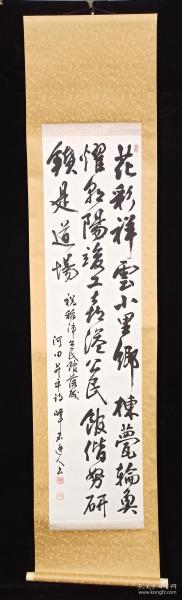 花彩祥雲小里鄉棟甍輪奐
耀朝陽竣工喜溢公民館偕努研
鑽是道場
祝稻津公民館落成
河田昇平詩